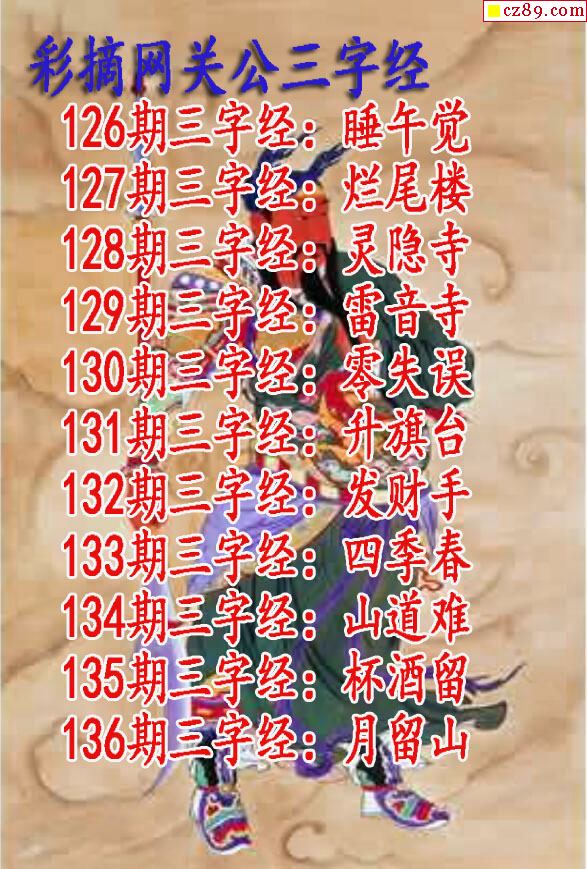 cz89.com
彩摘网关公三字经
126期三字经：睡午觉
127期三字经：烂尾楼
128期三字经：灵隐寺
129期三字经：雷音寺
130期三字经：零失误
131期三字经：升旗台
132期三字经：发财手
133期三字经：四季春
134期三字经：山道难
135期三字经：杯酒留
136期三字经：月留山